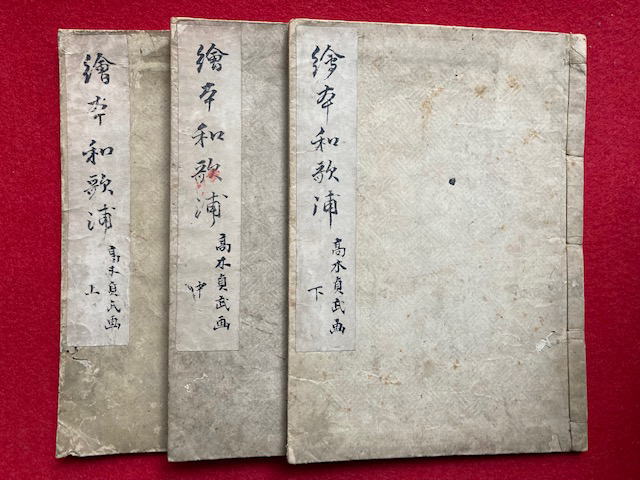 繪本和歌浦
高木貞武画
下
繪本和歌浦
高木貞武画
中
繪本和歌浦
高木貞武画
上